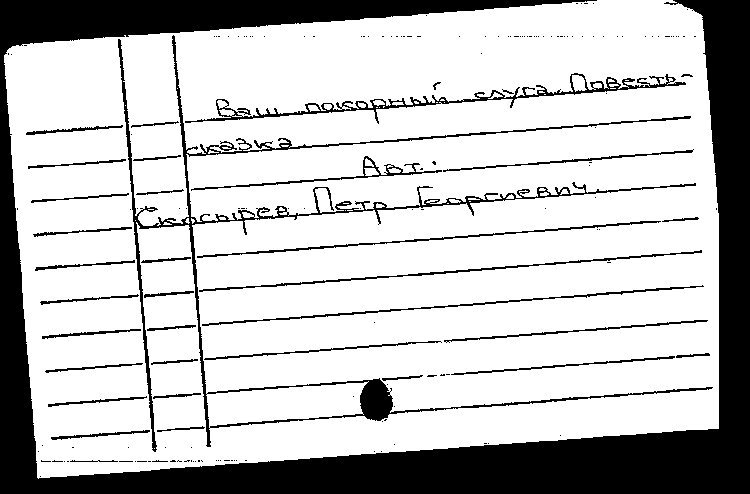 Ваш покорный слуга. Повесть-
сказка.
Авт.:
Скосырев, Петр Георгиевич.